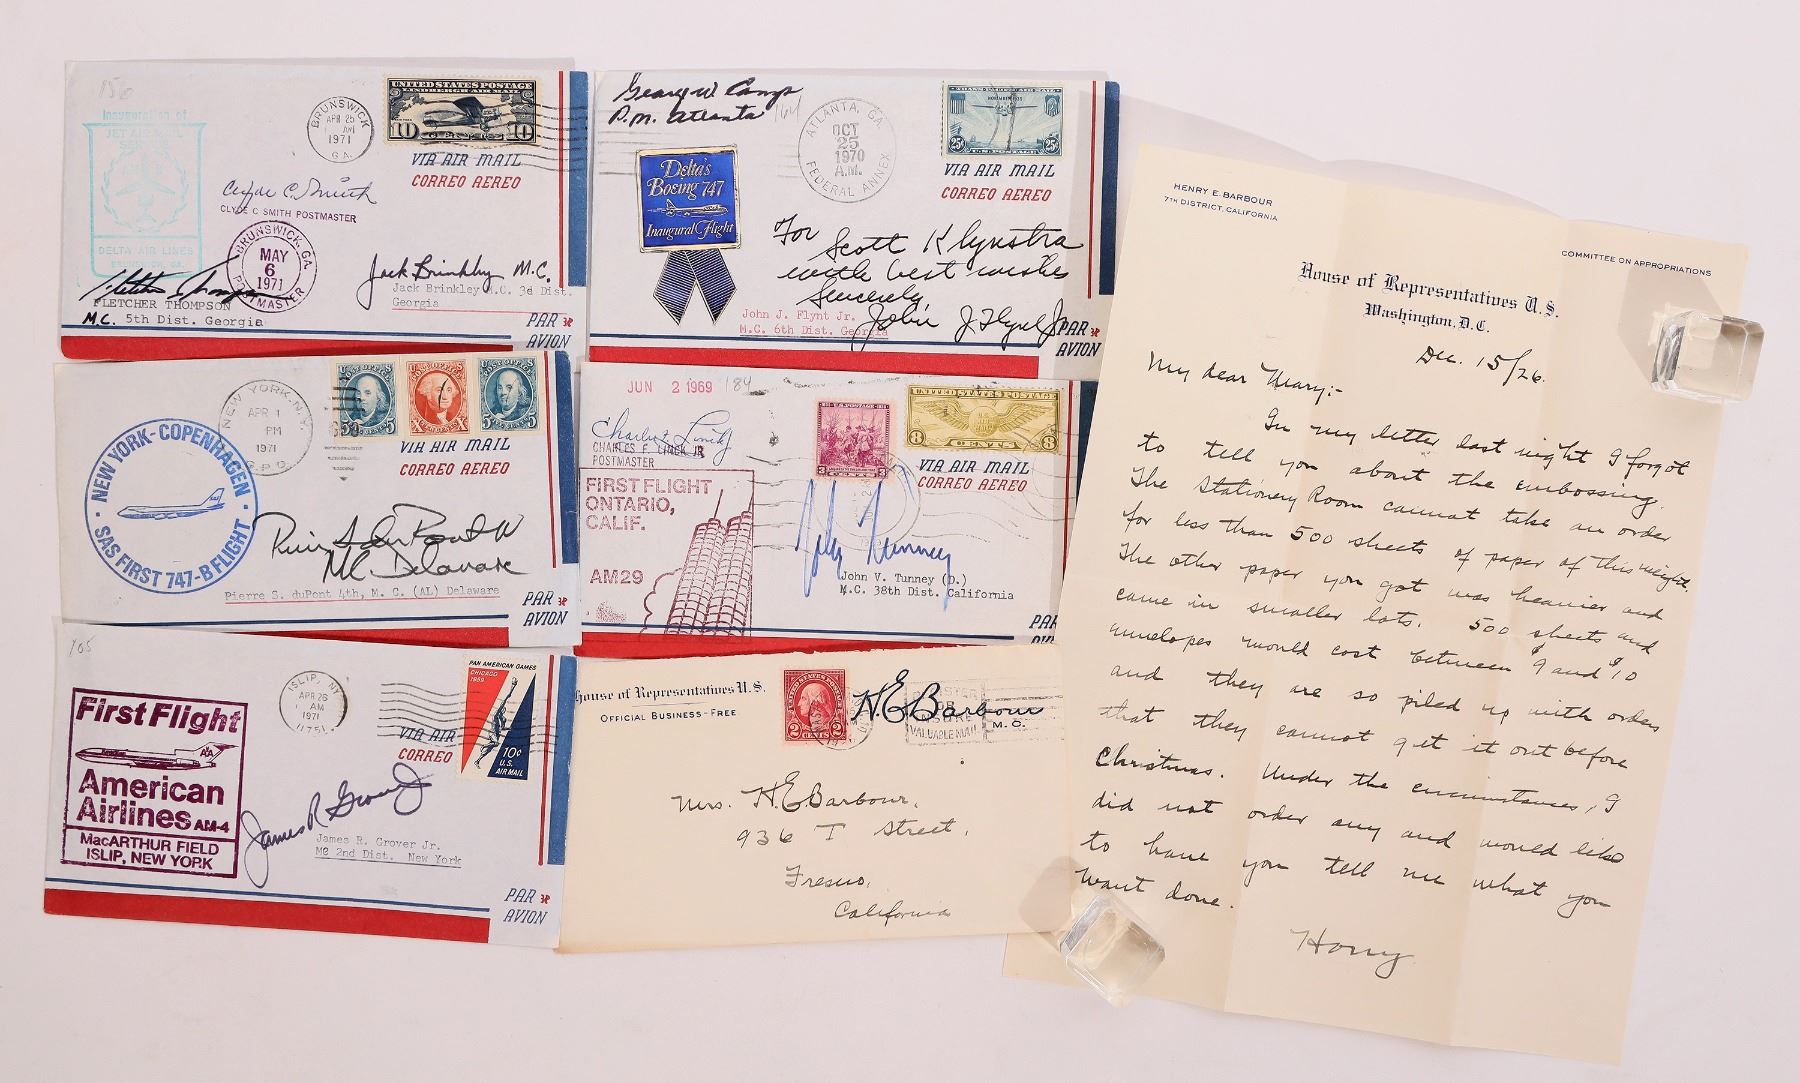 156
Inauguration of
JET AIR MAIL
SERVICE
AM-
DELTA AIR LINES
BRUNSWICK, GA.
BRUNSWICK
APR 25
AM
1971
GA.
UNITED STATES POSTAGE
LINDBERGH AIR MAIL
10 CENTS 10
VIA AIR MAIL
CORREO AEREO
Clyde C. Smith
CLYDE C SMITH POSTMASTER
BRUNSWICK, GA.
MAY
6
1971
POSTMASTER
Fletcher Thompson
FLETCHER THOMPSON
M.C. 5th Dist. Georgia
Jack Brinkley M.C.
Jack Brinkley M.C. 3d Dist.
Georgia
PAR
AVION
George W Camp
P.M. Atlanta
164
Delta's
Boeing 747
Inaugural Flight
ATLANTA, GA.
OCT
25
1970
A.M.
FEDERAL ANNEX
NOVEMBER 1935
25¢ 25¢
VIA AIR MAIL
CORREO AEREO
For
Scott Klynstra
with best wishes
Sincerely,
John J. Flynt Jr.
John J. Flynt Jr.
M.C. 6th Dist. Georgia
PAR
AVION
NEW YORK-COPENHAGEN
SAS FIRST 747-B FLIGHT
NEW YORK, N.Y.
APR 1
PM
1971
G.P.O.
POST OFFICE
5 5
POST OFFICE
X X
POST OFFICE
5 5
VIA AIR MAIL
CORREO AEREO
Pierre S. du Pont IV
MC Delaware
Pierre S. duPont 4th, M. C. (AL) Delaware
PAR
AVION
JUN 2 1969
184
Charles F. Linck Jr
CHARLES F. LINCK JR
POSTMASTER
FIRST FLIGHT
ONTARIO,
CALIF.
AM29
U.S. POSTAGE
3 3
UNITED STATES POSTAGE
8 CENTS 8
VIA AIR MAIL
CORREO AEREO
John Tunney
John V. Tunney (D.)
M.C. 38th Dist. California
PAR
AVION
705
First Flight
AA
American
Airlines AM-4
MacARTHUR FIELD
ISLIP, NEW YORK
ISLIP, NY
APR 26
AM
1971
11751
PAN AMERICAN GAMES
CHICAGO
1959
10¢
U.S.
AIR MAIL
VIA AIR
CORREO
James R Grover Jr
James R. Grover Jr.
MC 2nd Dist. New York
PAR
AVION
House of Representatives U.S.
OFFICIAL BUSINESS-FREE
UNITED STATES POSTAGE
2 CENTS 2
H.E. Barbour
M.C.
VALUABLE MAIL
Mrs. H.E. Barbour,
936 T Street,
Fresno,
California
HENRY E. BARBOUR
7TH DISTRICT, CALIFORNIA
COMMITTEE ON APPROPRIATIONS
House of Representatives U.S.
Washington, D.C.
Dec. 15/26.
My dear Mary:-
In my letter last night I forgot
to tell you about the embossing.
The Stationery Room cannot take an order
for less than 500 sheets of paper of this weight.
The other paper you got was heavier and
came in smaller lots. 500 sheets and
envelopes would cost between $9 and $10
and they are so piled up with orders
that they cannot get it out before
Christmas. Under the circumstances, I
did not order any and would like
to have you tell me what you
want done.
Harry